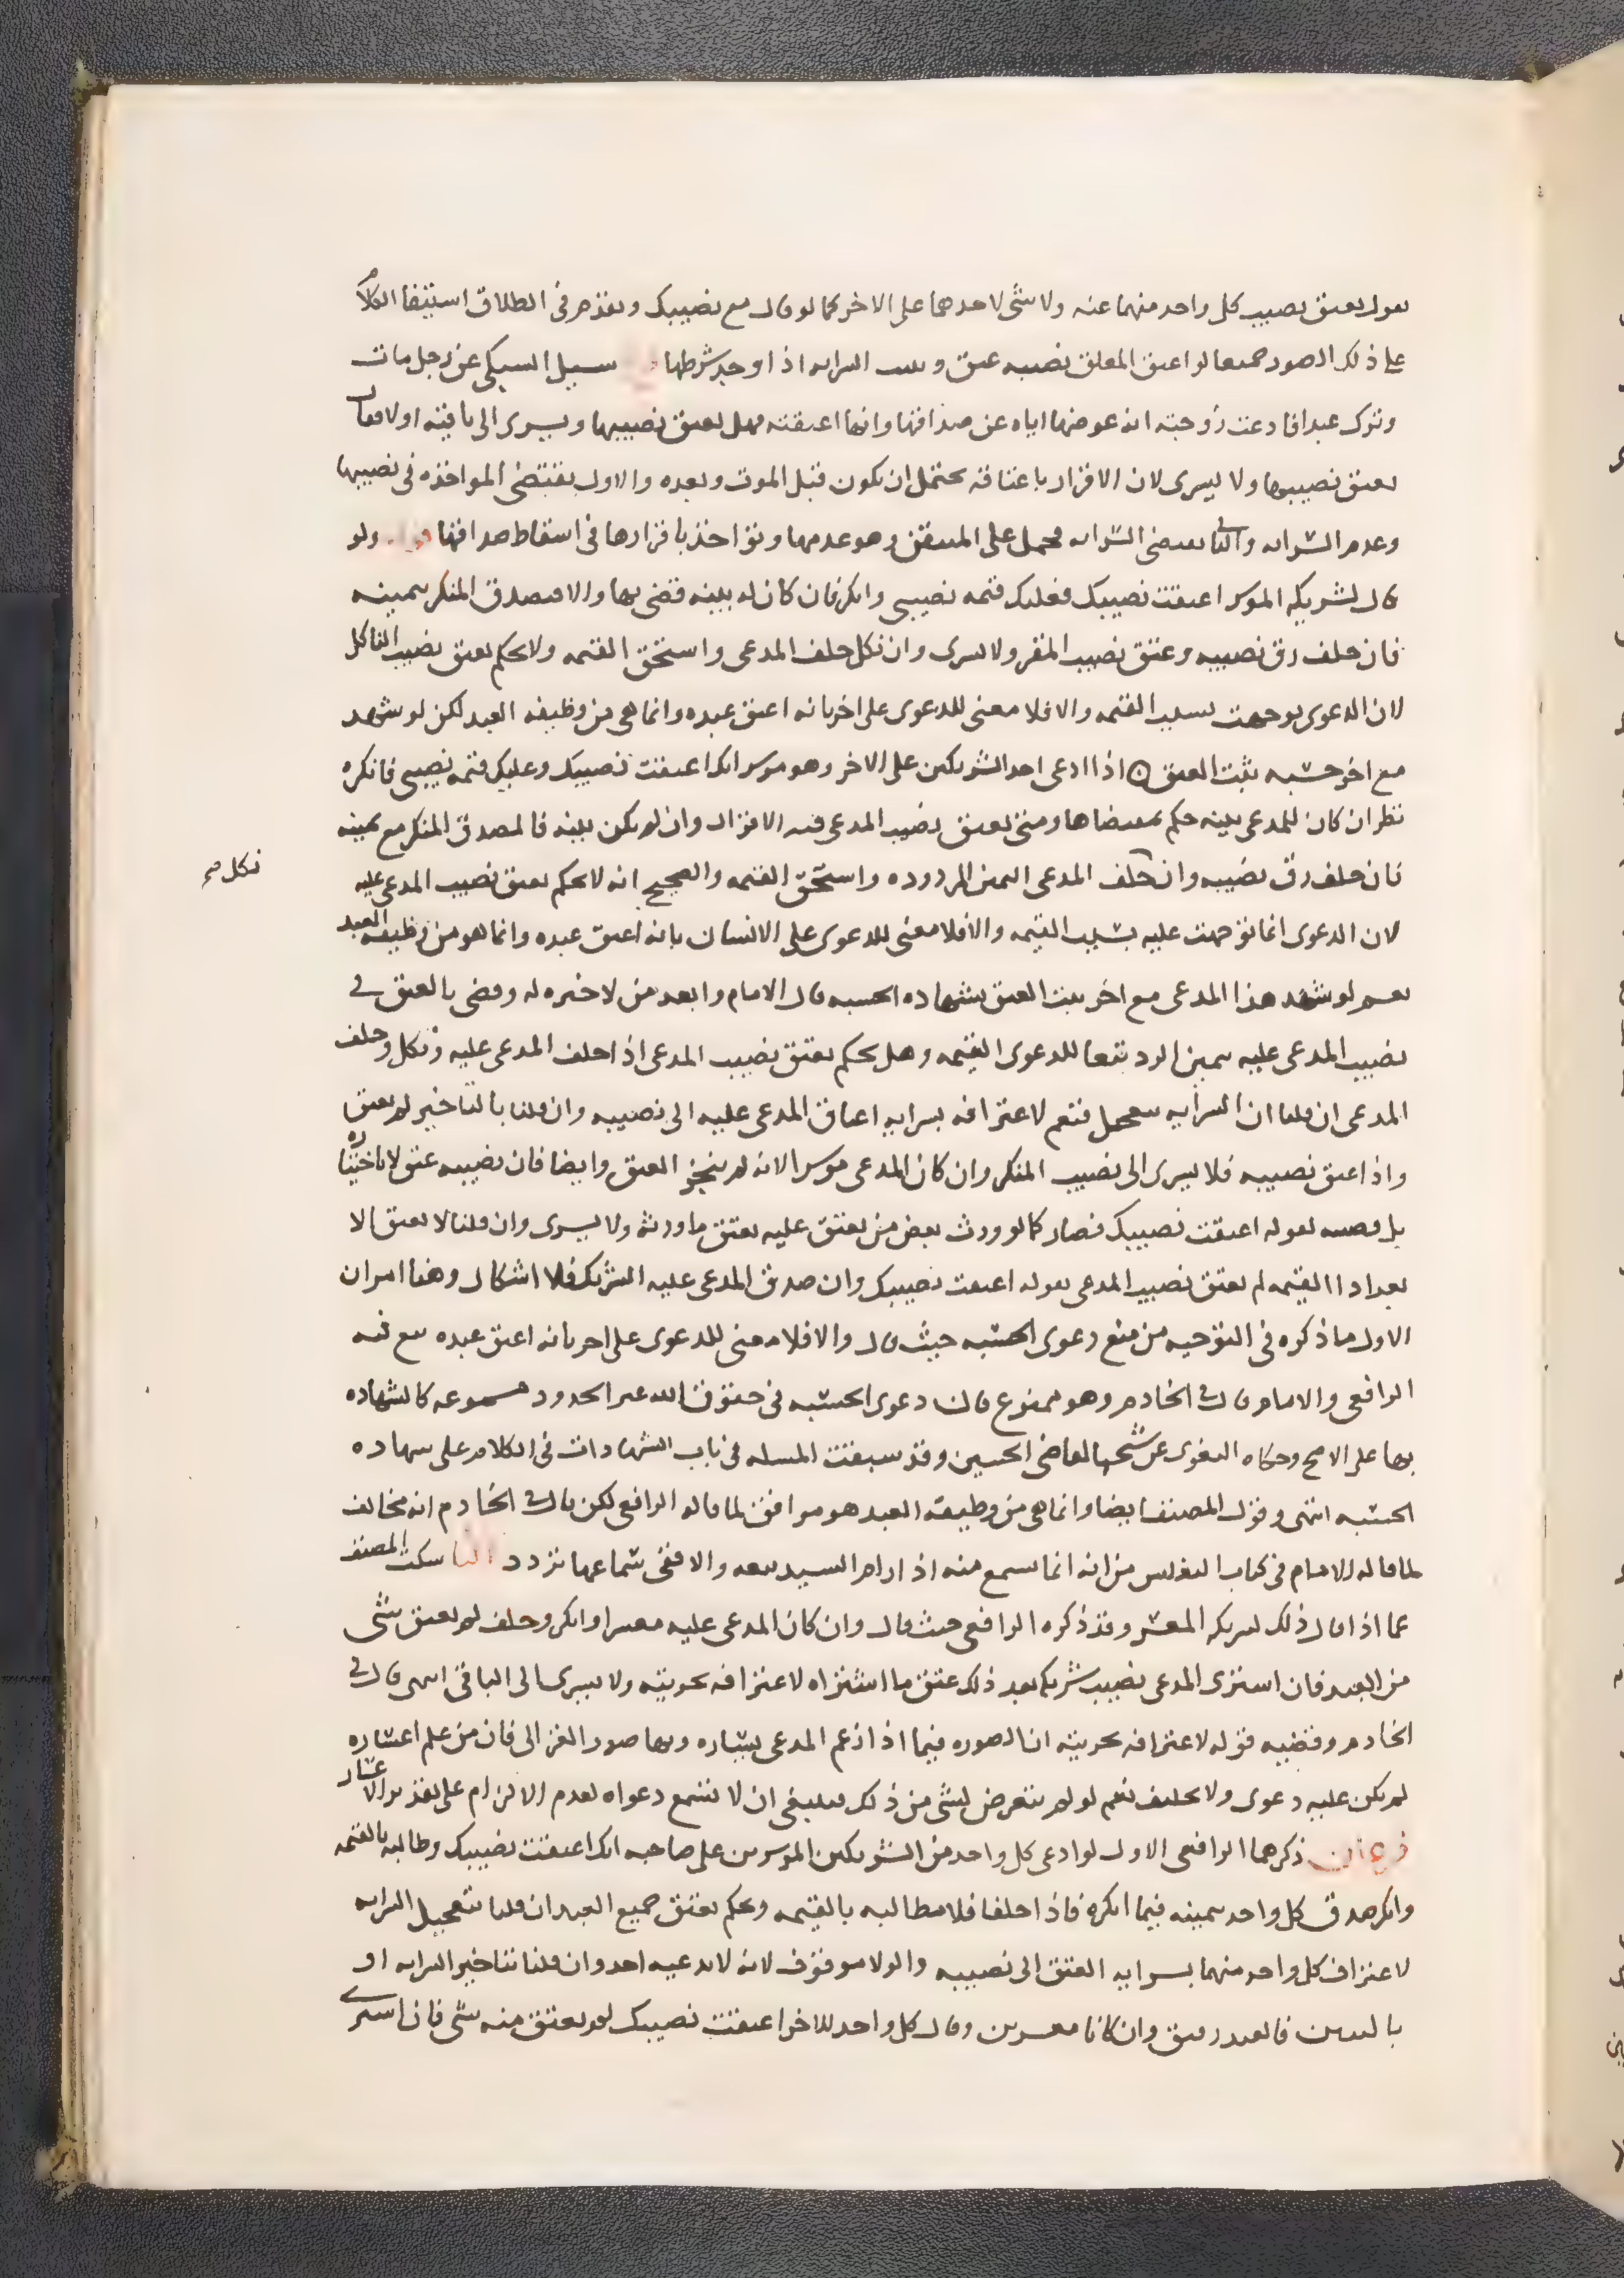 يعول يعتق نصيب كل واحد منهما عنه ولا شي لاحدهما على الاخر كما لو قال مع نصيبك وتقدم في الطلاق استيفا الكلام
على ذلك الصور جميعا لو اعتق المعلق نصيبه عتق وتثبت السرايه اذا وجد شرطها سيل السبكي عن رجل مات
وترك عبدا فادعت زوجته انه عوضها اياه عن صداقها وانها اعتقته فهل يعتق نصيبها ويسري الى باقيه اولا فقال
يعتق نصيبها ولا يسري لان الاقرار باعتاقه يحتمل ان يكون قبل الموت وبعده والاول يقتضي المواخذه في نصيبها
وعدم السرايه والثاني يقتضي السرايه فحمل على المتيقن وهو عدمها وتواخذ باقرارها في اسقاط صداقها ولو
قال لشريكه الموسر اعتقت نصيبك فعليك قيمه نصيبي وانكر فان كان له بينه قضى بها والا فيصدق المنكر بيمينه
فان حلف رق نصيبه وعتق نصيب المقر ولا يسري وان نكل حلف المدعي واستحق القيمه ولا يحكم بعتق نصيب الناكل
لان الدعوى توجهت بسبب القيمه والا فلا معنى للدعوى على اخر بانه اعتق عبده وانما هي من وظيفه العبد لكن لو شهد
مع اخر حسبه ثبت العتق اذا ادعى احد الشريكين على الاخر وهو موسر انك اعتقت نصيبك وعليك قيمه نصيبي فانكره
نظر ان كان للمدعي بينه حكم بمقتضاها ومتى يعتق نصيب المدعي فيه الاقوال وان لم يكن بينه فالمصدق المنكر مع يمينه
فان حلف رق نصيبه وان حلف المدعي اليمين المردوده واستحق القيمه والصحيح انه لا يحكم بعتق نصيب المدعى عليه
نكل صح
لان الدعوى انما توجهت عليه بسبب القيمه والا فلا معنى للدعوى على الانسان بانه اعتق عبده وانما هو من وظيفه العبد
نعم لو شهد هذا المدعي مع اخر يثبت العتق بشهاده الحسبه قال الامام وابعد من لا خبره له وقضى بالعتق في
نصيب المدعى عليه بيمين الرد تبعا للدعوى القيمه وهل يحكم بعتق نصيب المدعي اذا حلف المدعى عليه ونكل وحلف
المدعي ان قلنا ان السرايه تتعجل فنعم لاعترافه بسرايه اعتاق المدعى عليه الى نصيبه وان قلنا بالتاخير لم يعتق
واذا عتق نصيبه فلا يسري الى نصيب المنكر وان كان المدعي موسرا لانه لم ينجز العتق وايضا فان نصيبه عتق لا باختياره
بل قضيه لقوله اعتقت نصيبك فصار كما لو ورث بعض من يعتق عليه يعتق ما ورثه ولا يسري وان قلنا لا يعتق الا
بعد اداا القيمه لم يعتق نصيب المدعي بقوله اعتقت نصيبك وان صدق المدعى عليه الشريك فلا اشكال وهنا امران
الاول ما ذكره في التوجيه من منع دعوى الحسبه حيث قال والا فلا معنى للدعوى على اخر بانه اعتق عبده تبع فيه
الرافعي والامام قال في الخادم وهو ممنوع فان دعوى الحسبه في حقوق الله غير الحدود مسموعه كالشهاده
بها على الاصح وحكاه البغوي عن شيخها القاضي الحسين وقد سبقت المسله في باب الشهادات في الكلام على شهاده
الحسبه انتهى وقول المصنف ايضا وانما هي من وظيفه العبد هو موافق لما قاله الرافعي لكن قال في الخادم انه مخالف
لما قاله الامام في كتاب التفليس من انه انما يسمع منه اذا رام السيد بيعه والا ففي سماعها تردد الثاني سكت المصنف
عما اذا قال ذلك لشريكه المعسر وقد ذكره الرافعي حيث قال وان كان المدعى عليه معسرا وانكر وحلف لم يعتق شي
من العبد فان استرى المدعي نصيب شريكه بعد ذلك عتق ما اشتراه لاعترافه بحريته ولا يسري الى الباقي انتهى قال في
الخادم وقضيه قوله لاعترافه بحريته ان الصوره فيما اذا زعم المدعي يساره وبها صور الغزالي فان من علم اعساره
لم يكن عليه دعوى ولا تحليف نعم لو لم يتعرض لشي من ذلك فينبغي ان لا تسمع دعواه لعدم الالزام على تقدير الاعسار
فرعان ذكرهما الرافعي الاول لو ادعى كل واحد من الشريكين الموسرين على صاحبه انك اعتقت نصيبك وطالبه بالقيمه
وانكر صدق كل واحد بيمينه فيما انكره فاذا حلفا فلا مطالبه بالقيمه ويحكم بعتق جميع العبد ان قلنا بتعجيل السرايه
لاعتراف كل واحد منهما بسرايه العتق الى نصيبه والولا موقوف لانه لا يدعيه احد وان قلنا بتاخير السرايه او
بالتبيين فالعبد رقيق وان كانا معسرين وقال كل واحد للاخر اعتقت نصيبك لم يعتق منه شي فان اشترى